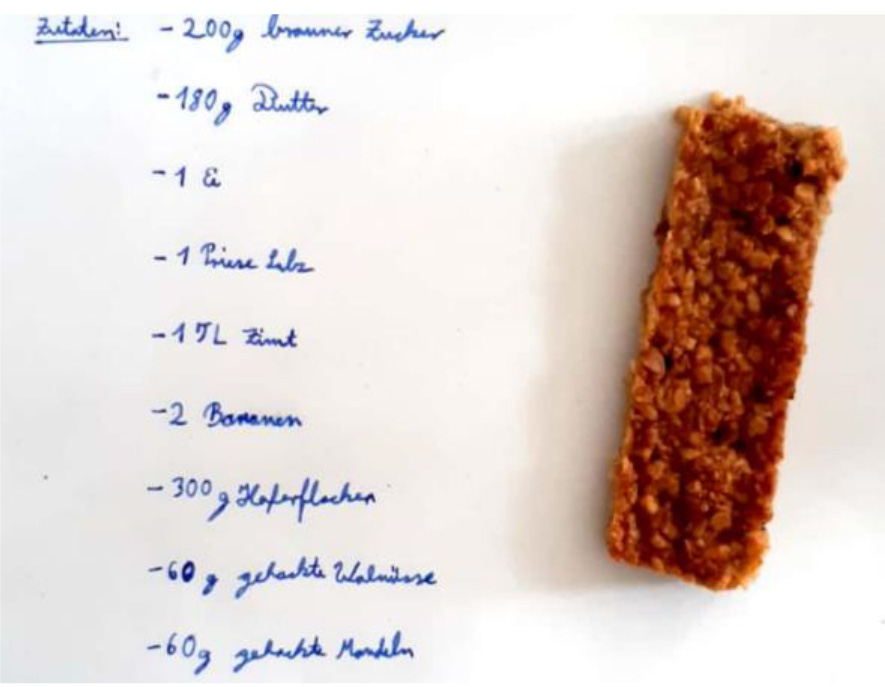 Zutaten: - 200g brauner Zucker
- 180g Butter
- 1 Ei
- 1 Priese Salz
- 1 TL Zimt
- 2 Bananen
- 300g Haferflocken
- 60g gehackte Walnüsse
- 60g gehackte Mandeln